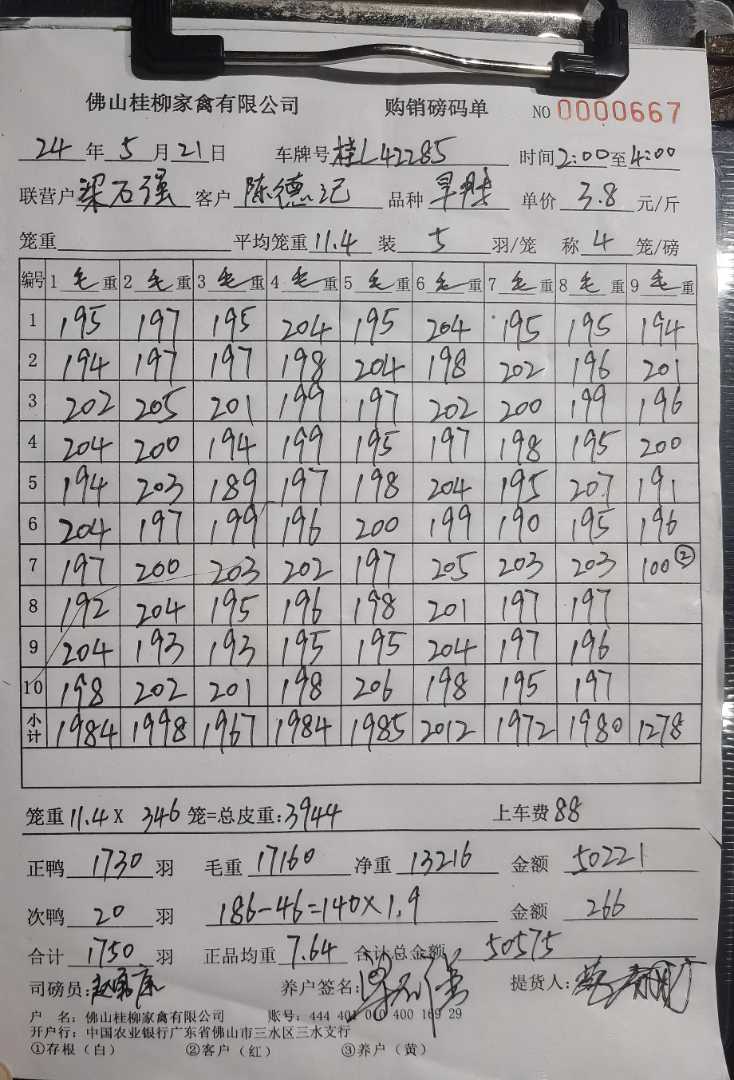 佛山桂柳家禽有限公司 购销磅码单 NO 0000667
24 年 5 月 21 日 车牌号 桂L42285 时间 2:00 至 4:00
联营户 梁石强 客户 陈德记 品种 单价 3.8 元/斤
笼重 平均笼重 11.4 装 5 羽/笼 称 4 笼/磅
编号 1 毛 重 2 毛 重 3 毛 重 4 毛 重 5 毛 重 6 毛 重 7 毛 重 8 毛 重 9 毛 重
1 195 197 195 204 195 204 195 195 194
2 194 197 197 198 204 198 202 196 201
3 202 205 201 199 197 202 200 199 196
4 204 200 194 199 195 197 198 195 200
5 194 203 189 197 198 204 195 207 191
6 204 197 199 196 200 199 190 195 196
7 197 200 203 202 197 205 203 203 100 ②
8 192 204 195 196 198 201 197 197
9 204 193 193 195 195 204 197 196
10 198 202 201 198 206 198 195 197
小计 1984 1998 1967 1984 1985 2012 1972 1980 1278
笼重 11.4 X 346 笼=总皮重: 3944 上车费 88
正鸭 1730 羽 毛重 17160 净重 13216 金额 50221
次鸭 20 羽 186-46=140×1.9 金额 266
合计 1750 羽 正品均重 7.64 合计总金额 50575
司磅员: 养户签名: 提货人:
户 名: 佛山桂柳家禽有限公司 账号: 444 401 010 400 169 29
开户行: 中国农业银行广东省佛山市三水区三水支行
①存根（白） ②客户（红） ③养户（黄）